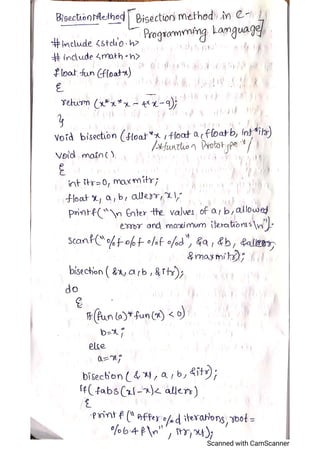 Bisection Method [Bisection method in C-
Programming Language]
#include <stdio.h>
#include <math.h>
float fun (float x)
{
return (x*x*x - 4*x-9);
}
void bisection (float *x, float a, float b, int *itr)
/*function Prototype*/
void main()
{
int itr=0, maxmitr;
float x, a, b, allerr, x1;
printf("\n Enter the values of a, b, allowed
error and maximum iterations\n");
scanf("%f %f %f %d", &a, &b, &allerr,
&maxmitr);
bisection (&x, a, b, &itr);
do
{
if (fun(a)*fun(x) < 0)
b=x;
else
a=x;
bisection (&x1, a, b, &itr);
if (fabs(x1-x)< allerr)
{
printf ("After %d iterations, root =
%6.4f\n", itr, x1);
Scanned with CamScanner